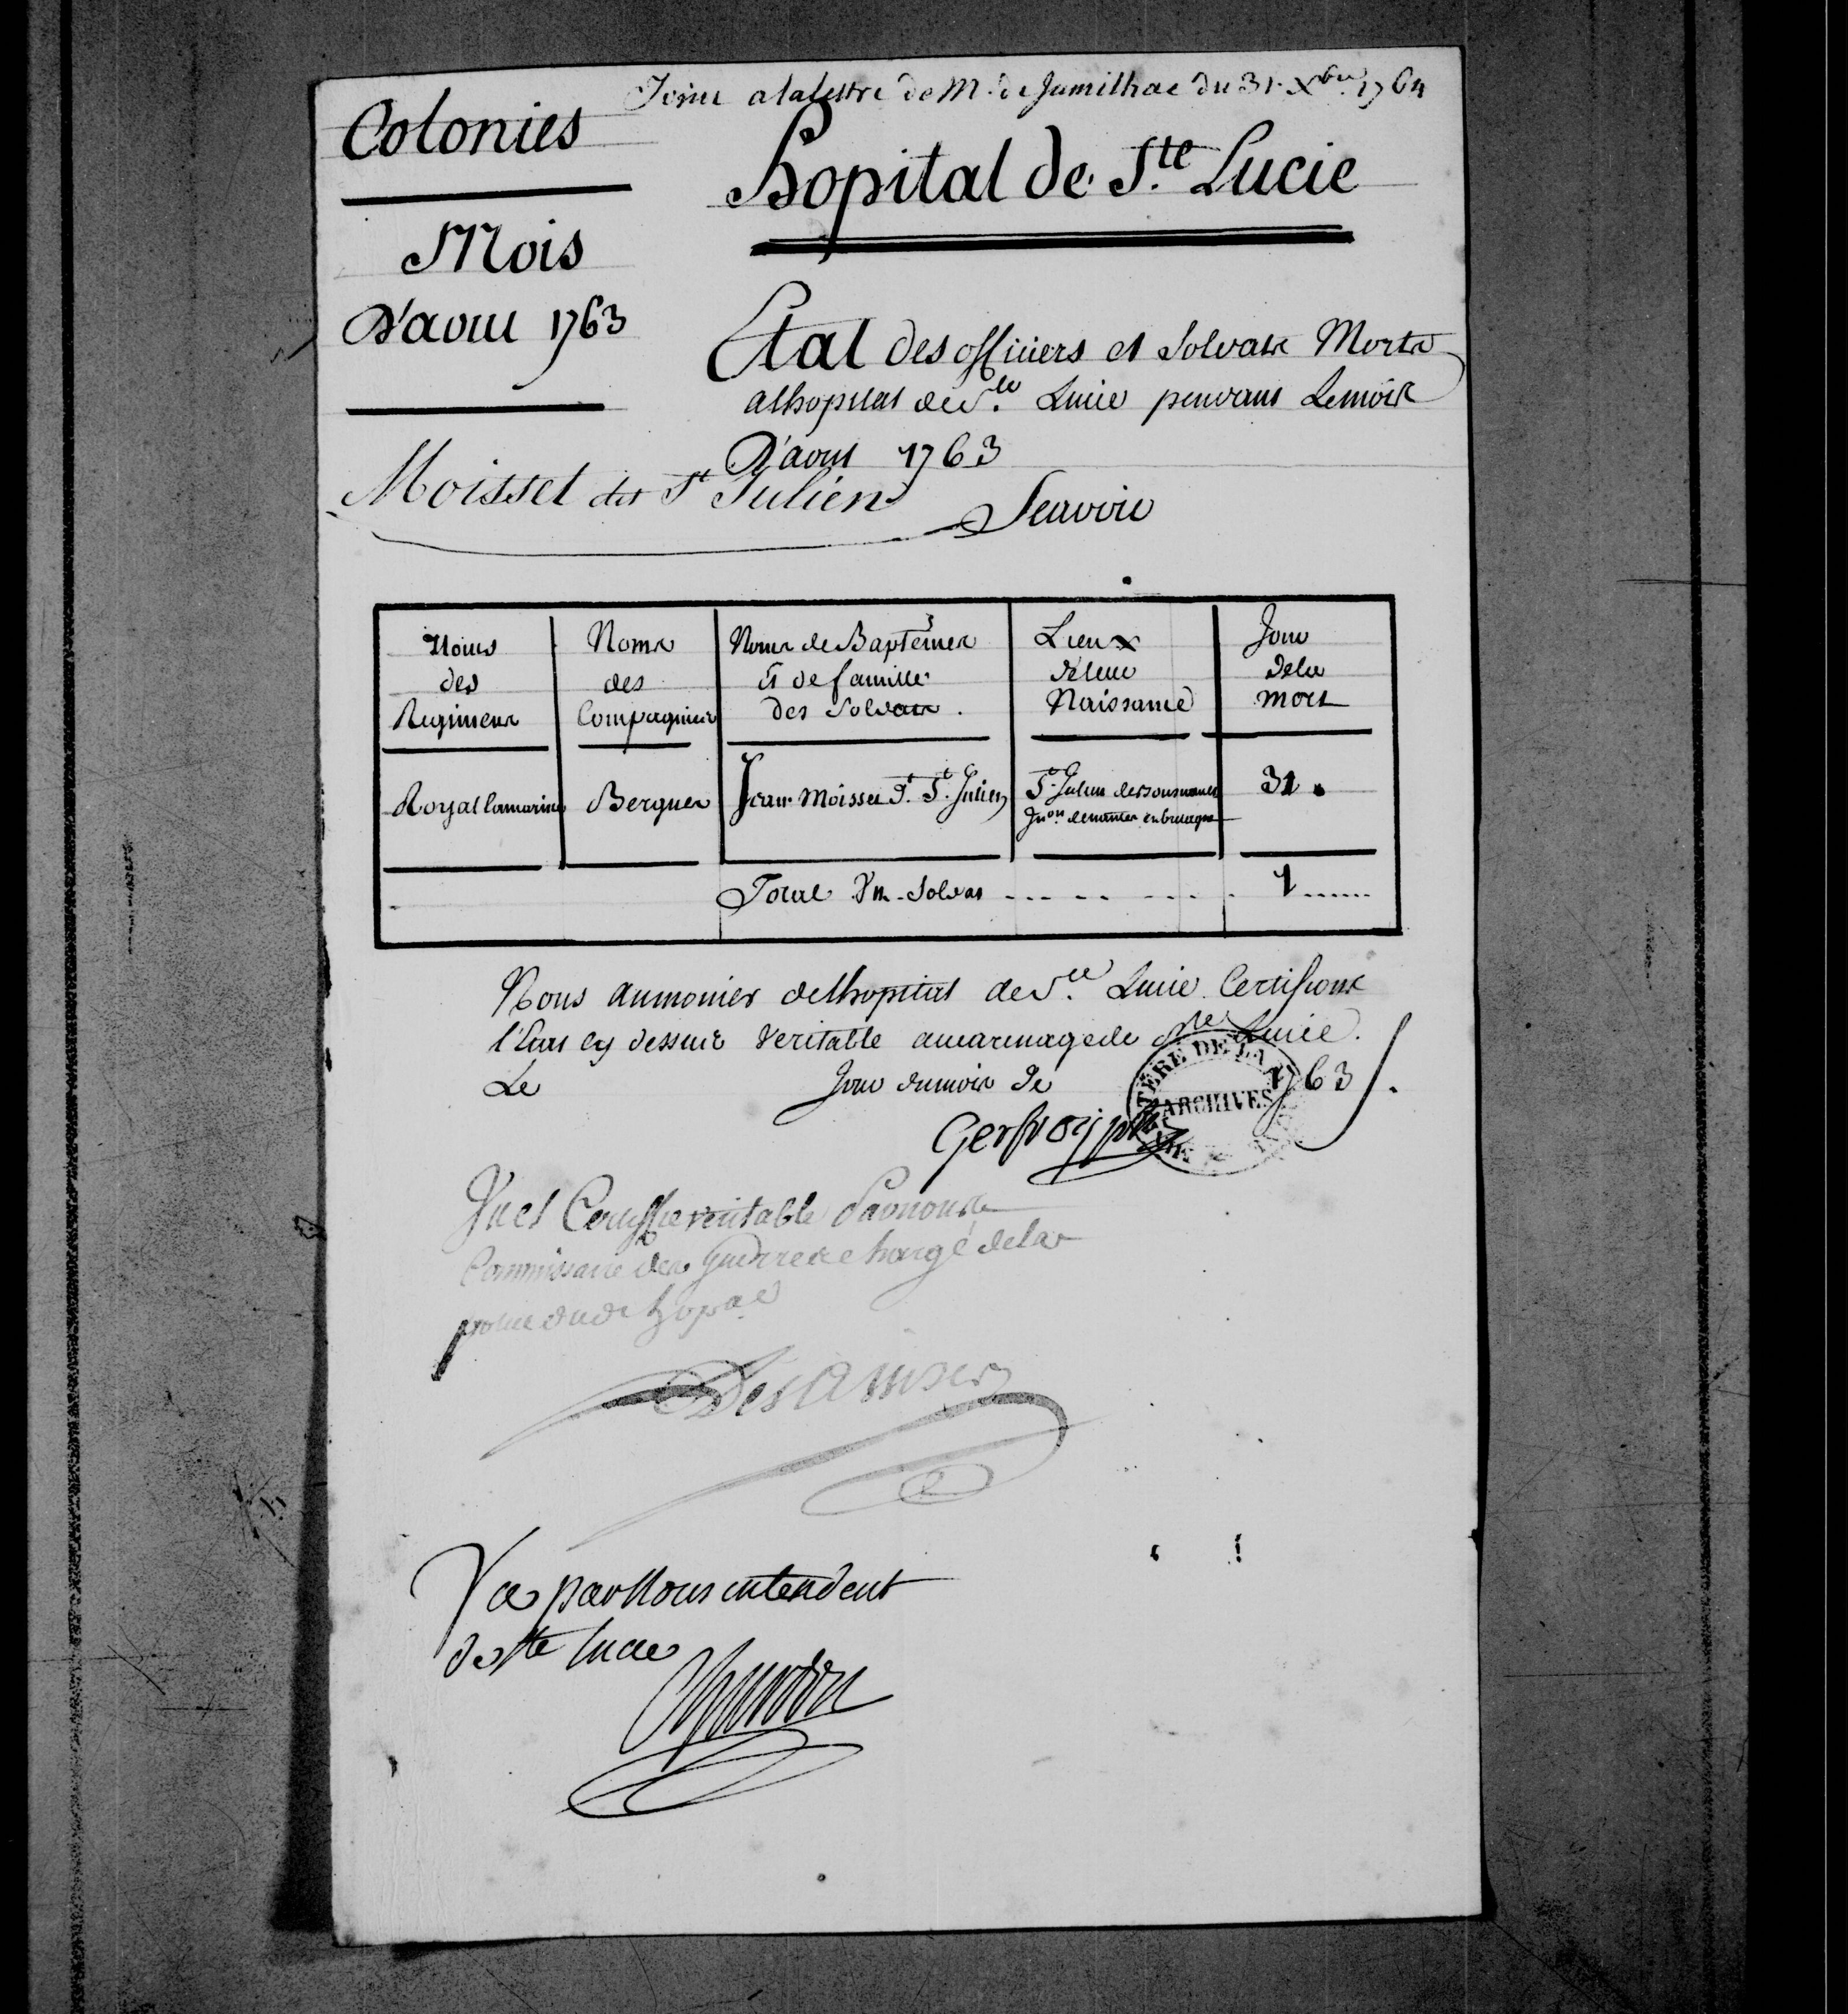 Joint a la lettre de M. de Jumilhac du 31. Xbre 1764
Colonies
Hopital de Ste Lucie
Mois
D'aoust 1763
Etat des officiers et Soldats Morts
alhopital de Ste Lucie pendant Lemois
D'aoust 1763
Moisset dit St Julien
Scavoir
Noms des Regimens
Noms des Compagnies
Noms de Baptemes et de famille des Soldats.
Lieux de leur Naissance
Jour de la mort
Royal lamarine
Bergues
Jean Moisset d. St. Julien
St. Julien
31.
Total Un Soldat
1
Nous aumonier delhopital de Ste Lucie Certifions
l'Etat cy dessus Veritable au carenage de Ste Lucie.
Le jour du mois de 1763
ARCHIVES
Vu et Certiffié veritable Par nous
Commissaire des Guerres chargé dela
police dudt hopal
Vu par Nous intendent
de Ste lucie